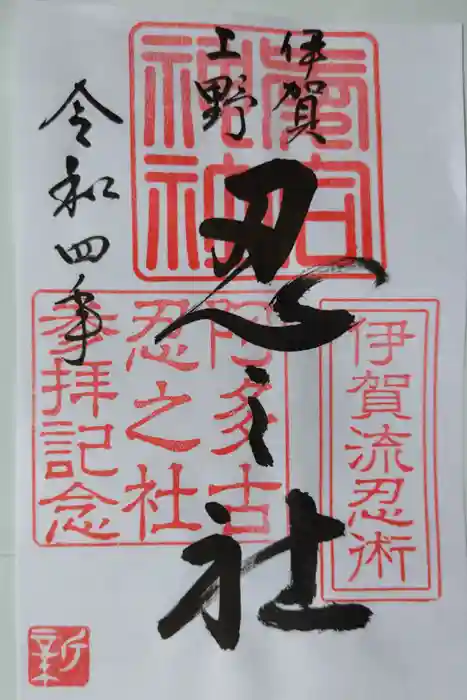 伊賀
上野
忍之社
令和四年
阿多古
忍之社
参拝記念
伊賀流忍術
新